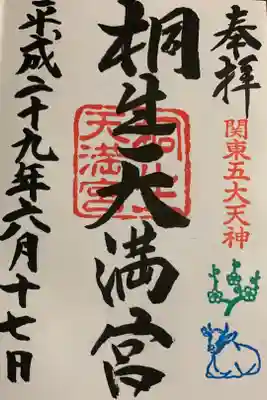 奉拝
関東五大天神
桐生天満宮
桐生天満宮
平成二十九年六月十七日